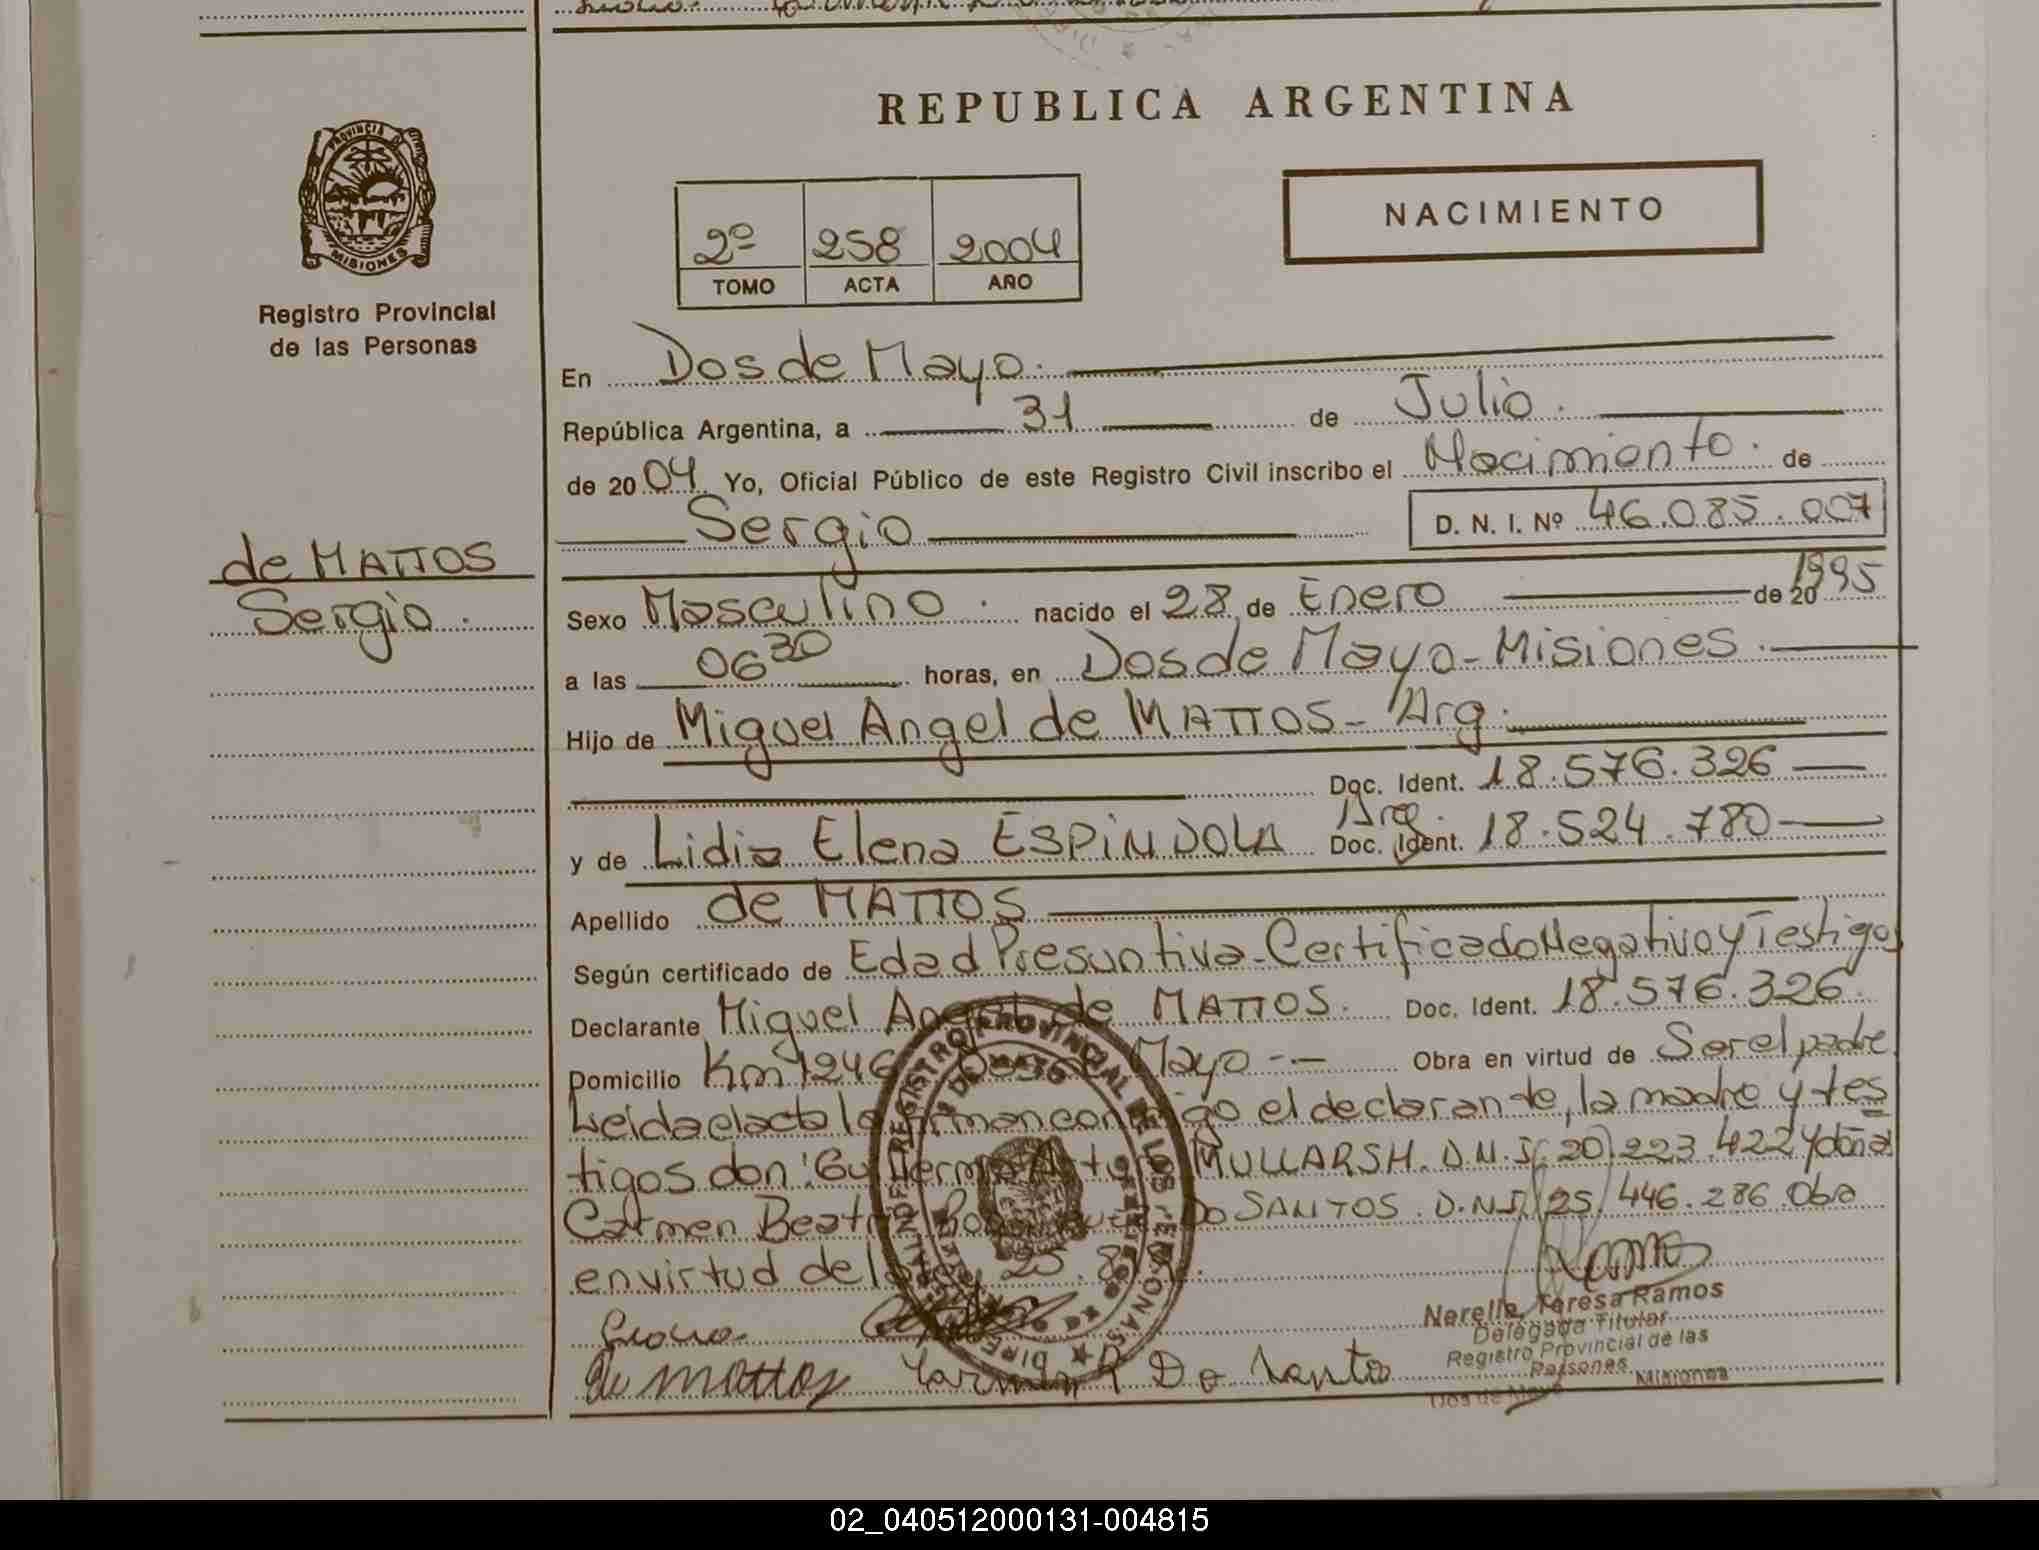 REPUBLICA ARGENTINA
PROVINCIA
MISIONES
Registro Provincial
de las Personas
NACIMIENTO
2º 258 2004
TOMO ACTA AÑO
En Dos de Mayo.
República Argentina, a 31 de Julio.
de 2004 Yo, Oficial Público de este Registro Civil inscribo el Nacimiento. de
Sergio D. N. I. Nº 46.085.007
de MATTOS
Sergio.
Sexo Masculino. nacido el 28 de Enero de 20 1995
a las 06 30 horas, en Dos de Mayo - Misiones.
Hijo de Miguel Angel de MATTOS - Arg.
Doc. Ident. 18.576.326
Arg.
y de Lidia Elena ESPINDOLA Doc. Ident. 18.524.780
Apellido de MATTOS
Según certificado de Edad Presuntiva - Certificado Negativo y Testigos
Declarante Miguel Angel de MATTOS. Doc. Ident. 18.576.326.
Domicilio Km 1246 Dos de Mayo -- Obra en virtud de Ser el padre
Leida el acta la firman conmigo el declarante, la madre y tes
tigos don: Guillermo Arturo MULLARSH. D.N.I. 20.223.422 y doña
Carmen Beatriz DO SANTOS. D.N.I. 25.446.286. Oba
en virtud de la Ley 25.8
de mattos Carmen R Do Santo
REGISTRO PROVINCIAL DE LAS PERSONAS
Nerelle Teresa Ramos
Delegada Titular
Registro Provincial de las
Personas Misiones
Dos de Mayo
02_040512000131-004815